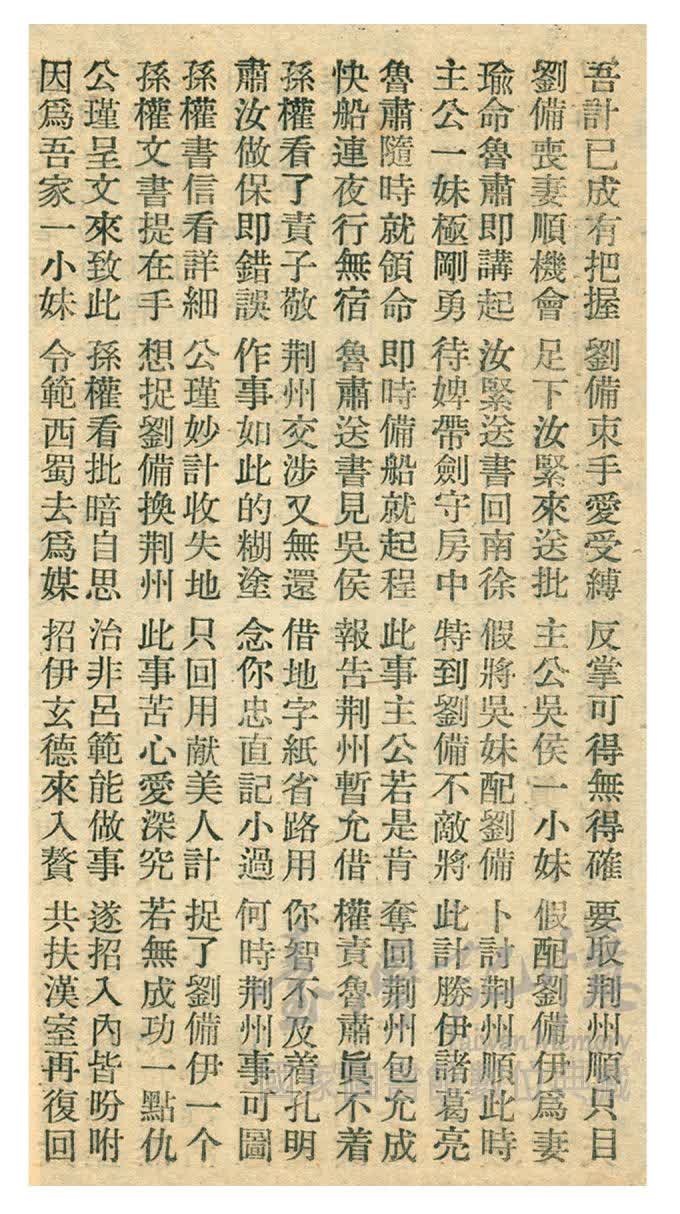 吾計已成有把握 劉備束手愛受縛 反掌可得無得確 要取荆州順只目
劉備喪妻順機會 足下汝緊來送批 主公吳侯一小妹 假配劉備伊爲妻
瑜命魯肅即講起 汝緊送書回南徐 假將吳妹配劉備 卜討荆州順此時
主公一妹極剛勇 待婢帶劍守房中 特到劉備不敵將 此計勝伊諸葛亮
魯肅隨時就領命 即時備船就起程 此事主公若是肯 奪回荆州包允成
快船連夜行無宿 魯肅送書見吳侯 報告荆州暫允借 權責魯肅眞不着
孫權看了責子敬 荆州交涉又無還 借地字紙省路用 你智不及着孔明
肅汝做保即錯誤 作事如此的糊塗 念你忠直記小過 何時荆州事可圖
孫權書信看詳細 公瑾妙計收失地 只回用献美人計 捉了劉備伊一个
孫權文書提在手 想捉劉備換荆州 此事苦心愛深究 若無成功一點仇
公瑾呈文來致此 孫權看批暗自思 治非呂範能做事 遂招入內皆吩咐
因爲吾家一小妹 令範西蜀去爲媒 招伊玄德來入贅 共扶漢室再復回
Taiwan Memory
國家圖書館數位典藏